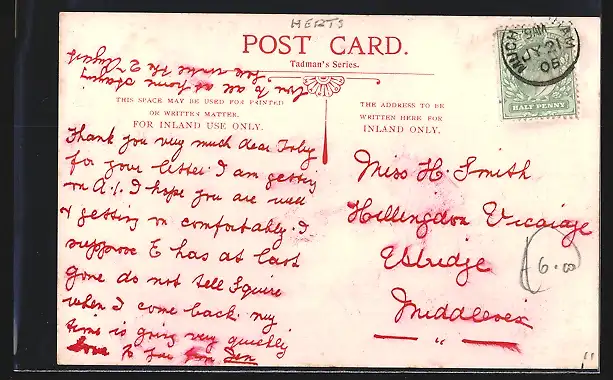 HERTS
POST CARD.
Tadman's Series.
THIS SPACE MAY BE USED FOR PRINTED
OR WRITTEN MATTER.
FOR INLAND USE ONLY.
THE ADDRESS TO BE
WRITTEN HERE FOR
INLAND ONLY.
MUCH HADHAM
9 AM
JY 21
05
HALF PENNY
Thank you very much dear
for your letter. I am getting
on A.1. I hope you are well
& getting on comfortably. I
suppose E has at last
gone do not tell Squire
when I come back. my
time is going very quickly
Love to
love to all at home
Miss H. Smith
Hillingdon Vicarage
Uxbridge
Middlesex
"
6.00